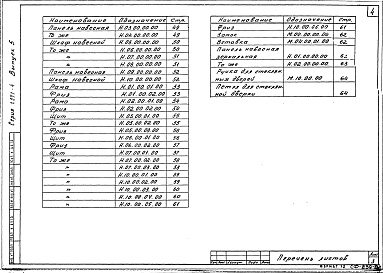 4
Наименование Обозначение Стр.
Панель навесная Н.03.00.00.00 48
То же Н.04.00.00.00 49
Шкаф навесной Н.05.00.00.00 50
То же Н.06.00.00.00 50
" Н.07.00.00.00 51
" Н.08.00.00.00 51
Панель навесная Н.09.00.00.00 52
Шкаф навесной Н.10.00.00.00 52
Рама Н.01.00.01.00 53
Фриз Н.01.00.02.00 53
Рама Н.02.00.01.00 54
Фриз Н.02.00.02.00
Щит Н.05.00.01.00
То же Н.05.00.02.00 55
Фриз Н.05.00.03.00
Щит Н.06.00.01.00
Фриз Н.06.00.02.00 57
Щит Н.07.00.01.00 57
То же Н.07.00.02.00 58
" Н.01.00.03.00 58
" Н.10.00.01.00 59
" Н.10.00.02.00 59
" Н.10.00.03.00 60
" Н.10.00.04.00 60
" Н.10.00.05.00 61
Наименование Обозначение Стр.
Фриз Н.10.00.06.00 61
Замок М.00.00.00.04 62
Вставка М.04.00.01.00 62
Панель навесная
зеркальная Н.01.00.00.00 62
То же Н.02.00.00.00 63
Ручка для стеклян-
ных дверей М.10.00.00 64
Петля для стеклян-
ной дверки 64
Перечень листов
Лист
3
Формат 12
Серия Выпуск 5